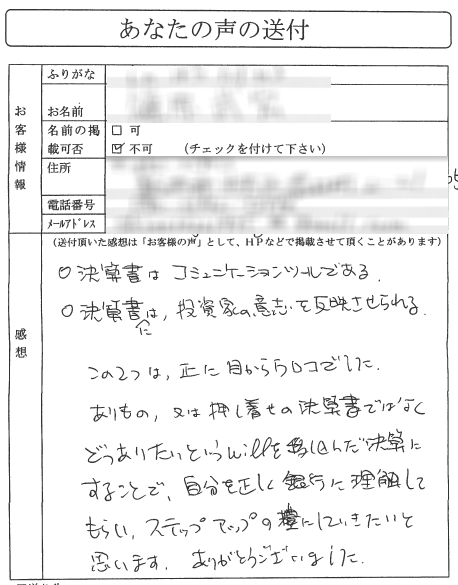 あなたの声の送付
お客様情報
ふりがな
お名前
名前の掲載可否
□ 可
☑ 不可 (チェックを付けて下さい)
住所
電話番号
メールアドレス
感想
(送付頂いた感想は「お客様の声」として、HPなどで掲載させて頂くことがあります)
○決算書はコミュニケーションツールである.
○決算書には, 投資家の意志を反映させられる.
この2つは, 正に目からウロコでした.
ありもの, 又は押し着せの決算書ではなく
どうありたいというwillを含んだ決算に
することで, 自分を正しく銀行に理解して
もらい, ステップアップの糧にしていきたいと
思います. ありがとうございました.